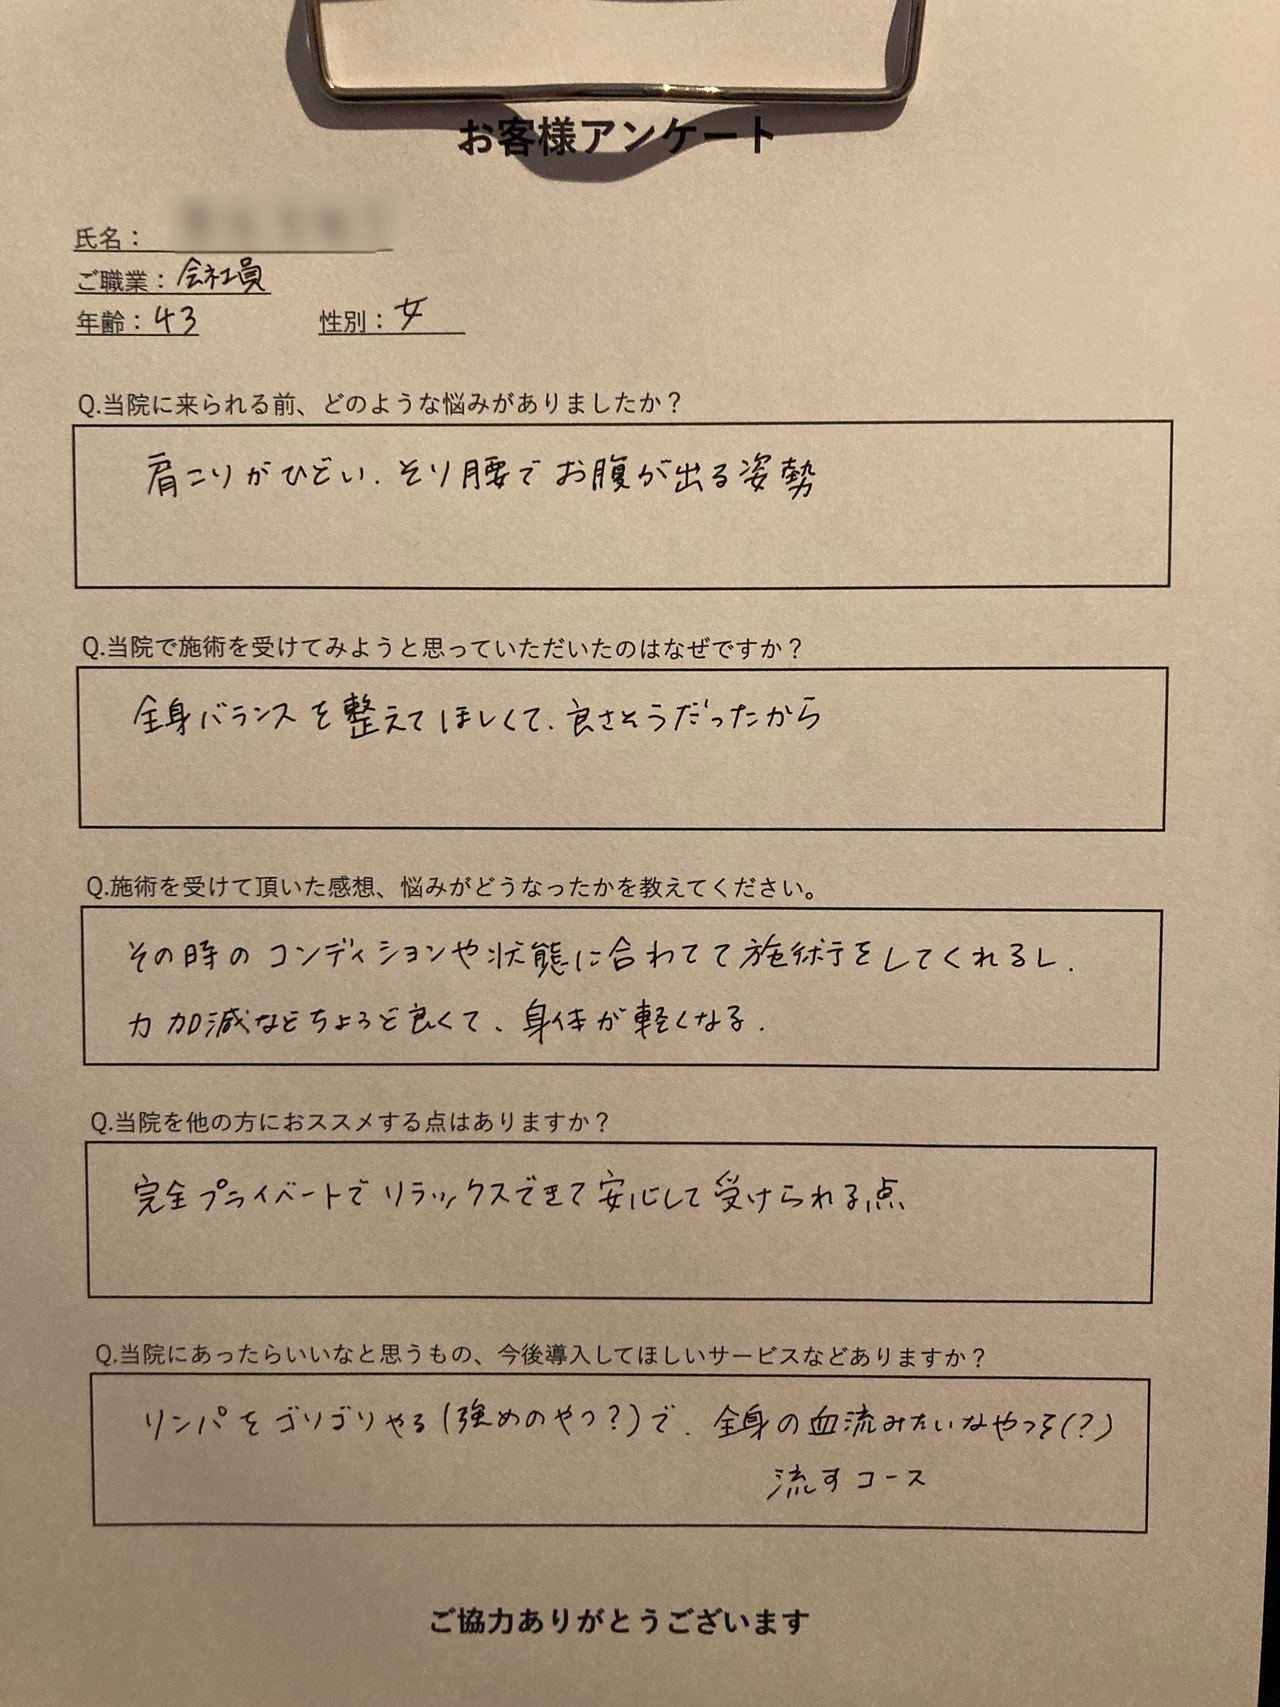 お客様アンケート
氏名：
ご職業：会社員
年齢：43 性別：女
Q.当院に来られる前、どのような悩みがありましたか？
肩こりがひどい. そり腰でお腹が出る姿勢
Q.当院で施術を受けてみようと思っていただいたのはなぜですか？
全身バランスを整えてほしくて. 良さそうだったから
Q.施術を受けて頂いた感想、悩みがどうなったかを教えてください。
その時のコンディションや状態に合わせて施術をしてくれるし.
力加減などちょうど良くて、身体が軽くなる.
Q.当院を他の方におススメする点はありますか？
完全プライベートでリラックスできて安心して受けられる点
Q.当院にあったらいいなと思うもの、今後導入してほしいサービスなどありますか？
リンパをゴリゴリやる(強めのやつ?)で. 全身の血流みたいなやつを(?)
流すコース
ご協力ありがとうございます